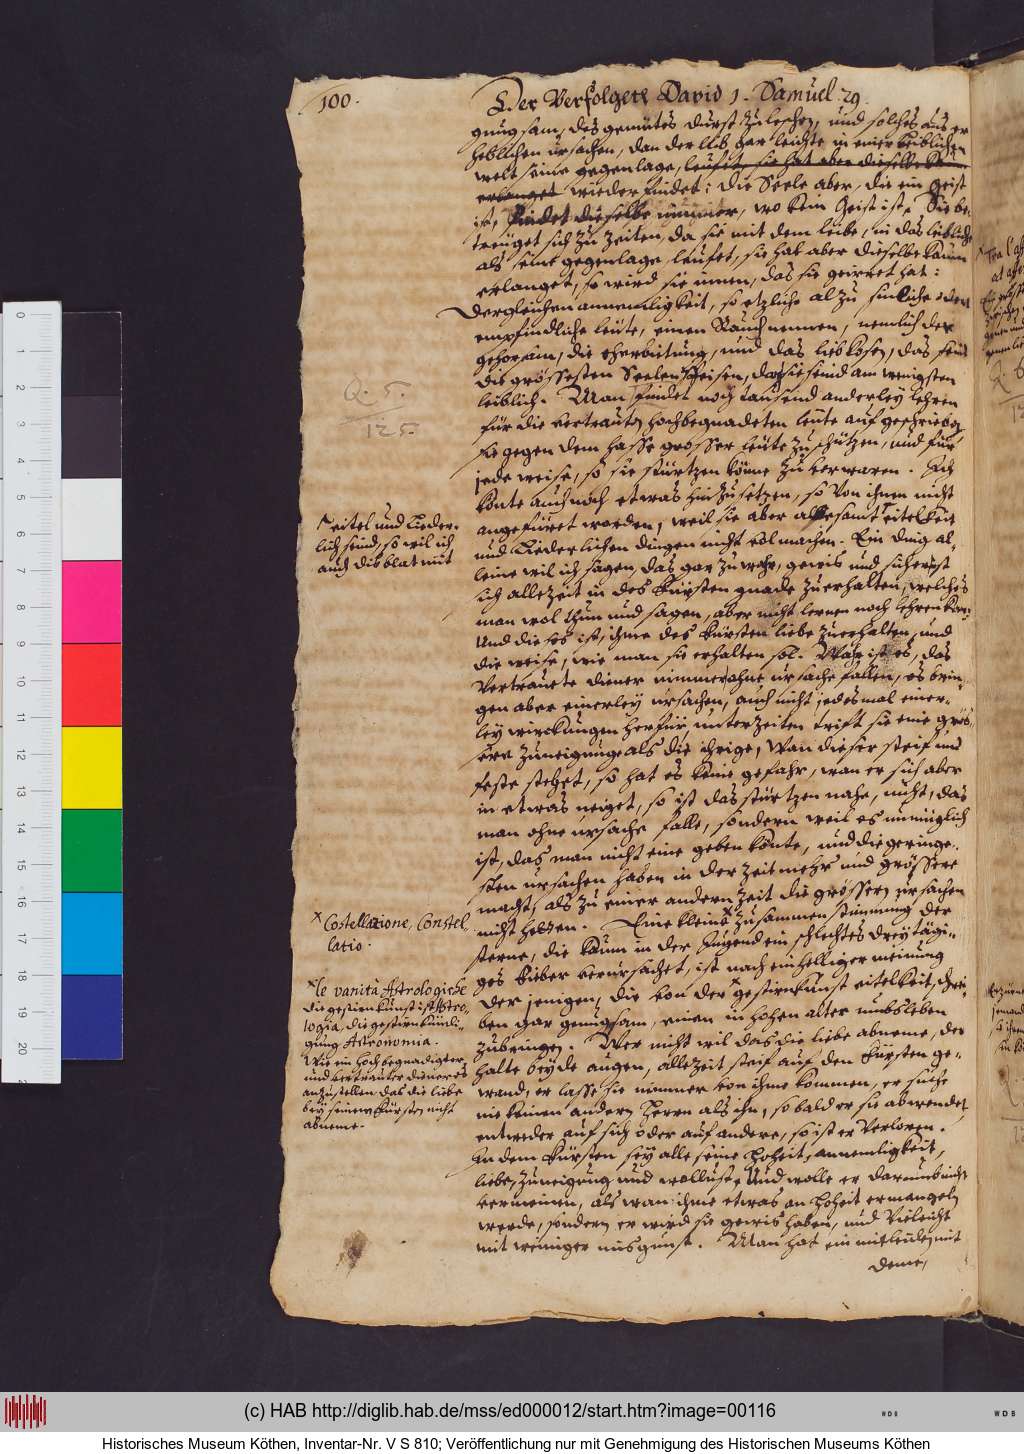 100.
Der Verfolgete David 1. Samuel 29.
gnugsam, des gemütes durst zuleschen, und solches aus er
heblichen ursachen, dan der leib gar leichte in einer leiblichen
welt seine gegenlage, leufet, sie hat aber dieselbe kaum
erlanget wieder findet: die Seele aber, die ein Geist
ist, findet dieselbe nimmer, wo kein Geist ist, Sie be-
treuget sich zu zeiten, da sie mit dem leibe, in das leibliche
als seine gegenlage leufet, sie hat aber dieselbe kaum
erlanget, so wird sie innen, das sie geirret hat:
Dergleichen annemligkeit, so etzliche alzu sinliche oder
empfindliche leute, einen Rauch nennen, nemlich der
gehorsam, die ehrerbietung, und das liebkosen, das seind
die grössesten Seelen speisen, da sie seind am wenigsten
leiblich. Man findet noch tausend anderley lehren
für die vertrauten hochbegnadeten leute auf geschrieben
sie gegen dem hasse grosser leute zu schützen, und für
jede weise, so sie stürtzen könne zu verwaren. Ich
konte auch noch etwas hin zu setzen, so von ihnen nicht
angefüret worden, weil sie aber allesamt eitelkeit
und Liederlichen dingen nicht vol machen. Ein ding al-
leine wil ich sagen, das gar zu wahr, gewis und sicher ist
sich allezeit in des Fürsten gnade zuerhalten, welches
man wol thun und sagen, aber nicht lernen noch lehren kan:
Und dieses ist, ihme des Fürsten liebe zuerhalten, und
die weise, wie man sie erhalten sol. Wahr ist es, das
Vertrauete diener nimmer ohne ursache fallen, es brin-
gen aber einerley ursachen, auch nicht jedesmal einer-
ley wirckungen herfür, unterzeiten trift sie eine grös
sere zuneigunge als die ihrige, Wan dieser steif und
feste stehet, so hat es keine gefahr, wan er sich aber
in etwas neiget, so ist das stürtzen nahe, nicht, das
man ohne ursache falle, sondern weil es unmüglich
ist, das man nicht eine geben könte, und die geringe-
sten ursachen haben in der zeit mehr und grössere
macht, als zu einer andern zeit die grössern ursachen
nicht hetten. Eine kleine zusammen stimmung der
sterne, die kaum in der Jugend ein schlechtes dreytägi-
ges fieber verursachet, ist nach einhelliger meinung
der jenigen, die von der gestirnkunst eitelkeit, schrei-
ben gar genugsam, einen in hohen alter umbs leben
zubringen. Wer nicht wil das die liebe abneme, der
halte beyde augen, allezeit steif auf den Fürsten ge-
wand, er lasse sie nimmer von ihme kommen, er suche
nie keinen andern Herrn als ihn, so bald er sie abwendet
entweder auf sich oder auf andere, so ist er Verloren.
In dem Fürsten sey alle seine Hoheit, annemligkeit,
liebe, zuneigung und wollust, Und wolle er darumb nicht
vermeinen, als wan ihme etwas an Hoheit ermangeln
werde, sondern er wird sie gewis haben, und Vieleicht
mit weniger misgunst. Man hat ein mitleiden mit
deme,
Q. 5.
125.
eitel und Lieder-
lich seind, so wil ich
auch dis blat mit
x Costellazione, Constel
latio.
x le vanita Astrologiche
die gestirnkunst ist Astro-
logia, die gestirnkündi-
gung Astronomia.
Wie ein hochbegnadigter
und vertrauter diener es
anzustellen, das die liebe
bey seinem Fürsten nicht
abneme.
(c) HAB http://diglib.hab.de/mss/ed000012/start.htm?image=00116
Historisches Museum Köthen, Inventar-Nr. V S 810; Veröffentlichung nur mit Genehmigung des Historischen Museums Köthen